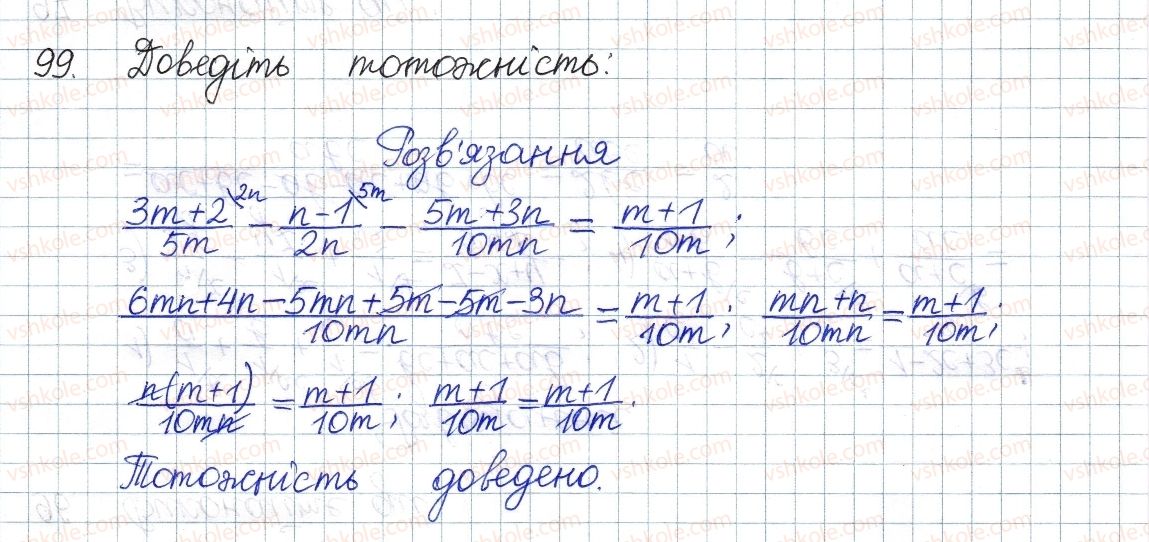 99. Доведіть тотожність:
Розв'язання
(3m+2)/(5m) \2n − (n−1)/(2n) \5m − (5m+3n)/(10mn) = (m+1)/(10m);
(6mn+4n−5mn+5m−5m−3n)/(10mn) = (m+1)/(10m); (mn+n)/(10mn) = (m+1)/(10m);
n(m+1)/(10mn) = (m+1)/(10m); (m+1)/(10m) = (m+1)/(10m).
Тотожність доведено.